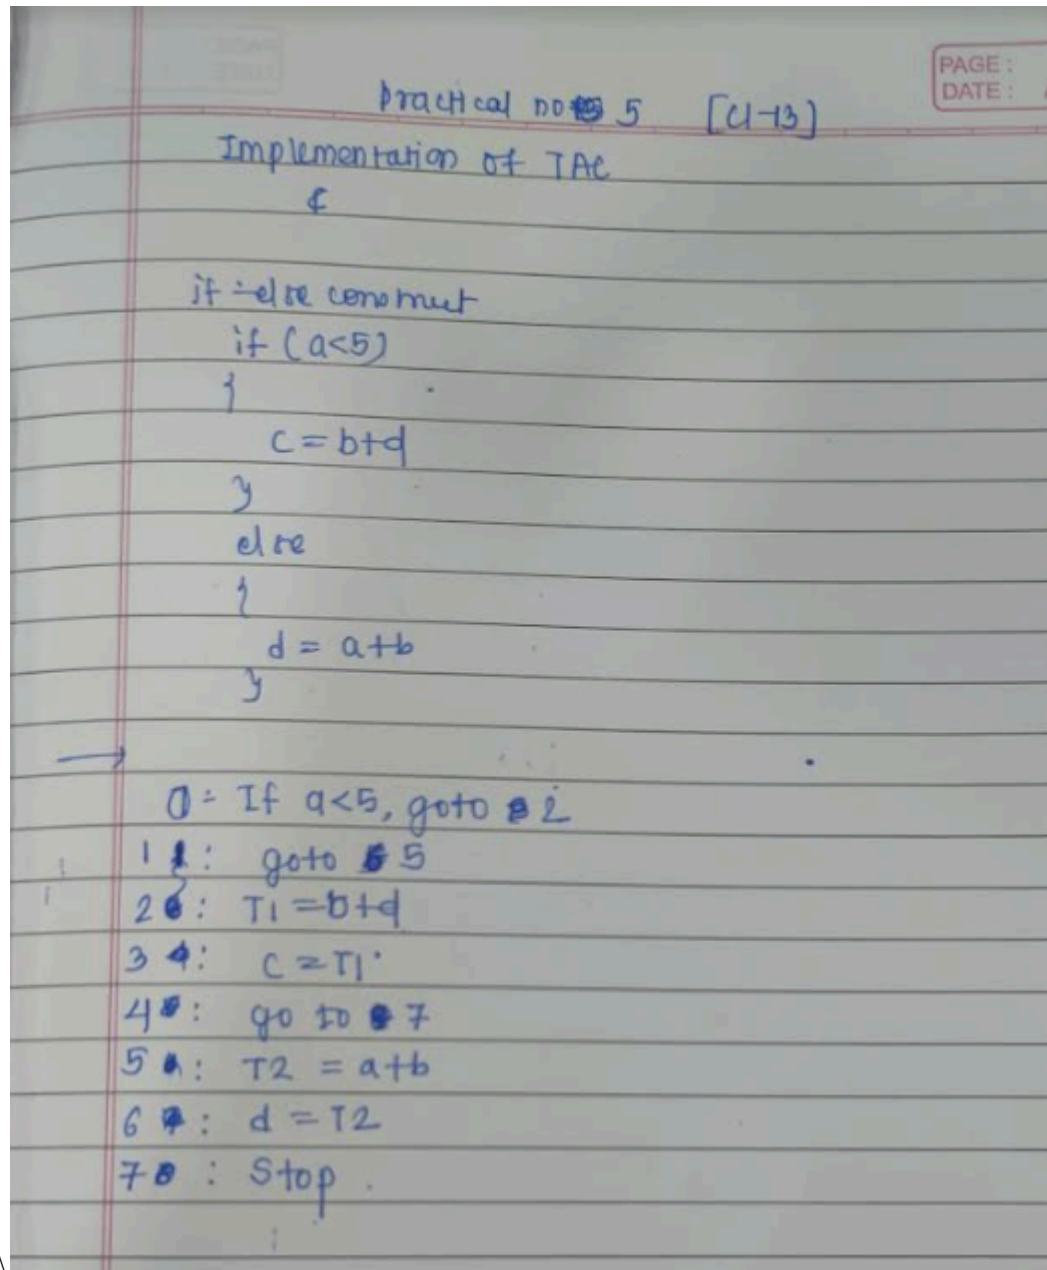 PAGE :
DATE :
Practical no 5 [CI-13]
Implementation of TAC
if-else construct
if (a<5)
{
c = b+d
}
else
{
d = a+b
}
→
0: If a<5, goto 2
1 : goto 5
2 : T1 = b+d
3 : c = T1
4 : go to 7
5 : T2 = a+b
6 : d = T2
7 : Stop.